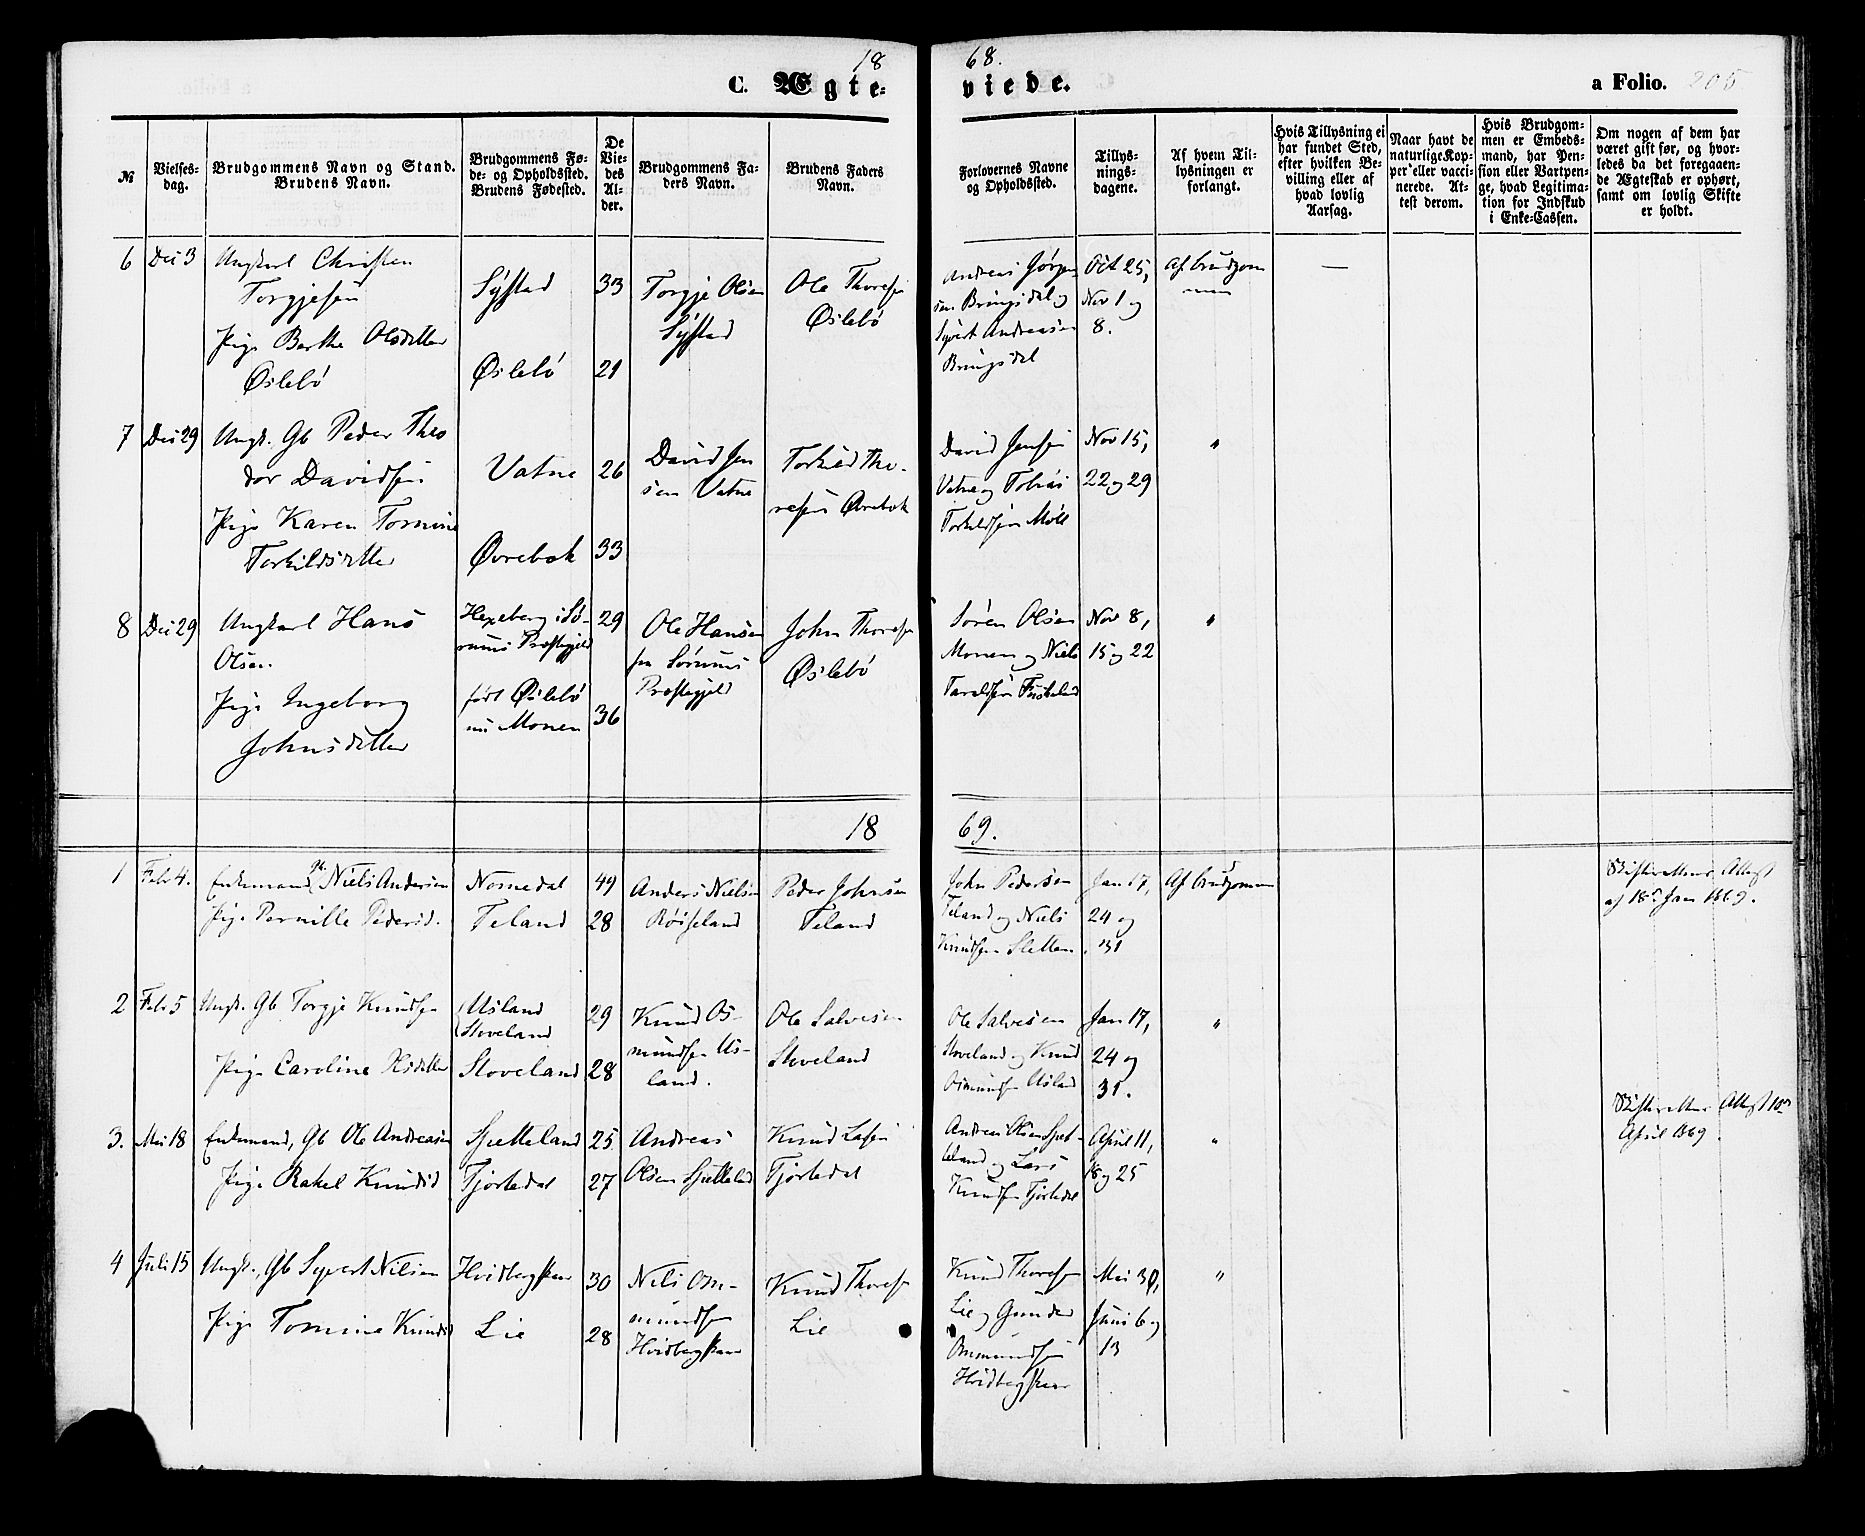 18
68.
C. Ægte-
viede.
a Folio. 205
№
Vielses-
dag.
Brudgommens Navn og Stand.
Brudens Navn.
Brudgommens Fø-
de- og Opholdssted.
Brudens Fødested.
De
Vie-
des
Al-
der.
Brudgommens Fa-
ders Navn.
Brudens Faders
Navn.
Forlovernes Navne
og Opholdssted.
Tillys-
nings-
dagene.
Af hvem Til-
lysningen er
forlangt.
Hvis Tillysning ei
har fundet Sted,
efter hvilken Be-
villing eller af
hvad lovlig
Aarsag.
Naar havt de
naturlige Kop-
per eller vacci-
nerede. At-
test derom.
Hvis Brudgom-
men er Embeds-
mand, har Pen-
sion eller Vartpen-
ge, hvad Legitima-
tion for Indskud
i Enke-Cassen.
Om nogen af dem har
været gift før, og hvor-
ledes da det foregaaen-
de Ægteskab er ophørt,
samt om lovlig Skifte
er holdt.
6 Dec 3
Ungkarl Christen
Torgjesen
Pige Berthe Olsdatter
Øslebö
Systad
Øslebö
33
21
Torgje Olsen
Systad
Ole Thoresen
Øslebö
Andreas Jørgen
sen Bringsdal og
Syvert Andreasen
Bringsdal
Oct 25,
Nov 1 og
8.
Af brudgom
men
—
7 Dec 29
Ungk. Gb Peder Theo
dor Davidsen
Pige Karen Tomine
Torkildsdatter
Vatne
Øvrebøk
26
33
David Jen
sen Vatne
Torkild Tho-
resen Øvrebøk
David Jensen
Vatne og Tobias
Torkildsen Möll
Nov 15,
22 og 29
"
8 Dec 29
Ungkarl Hans
Olsen
Pige Ingeborg
Johnsdatter
Hexeberg i Sö-
rums Præstegjeld
født Øslebö
nu Monen
29
36
Ole Hansen
fra Sörums
Præstegjeld
John Thoresen
Øslebö
Sören Olsen
Monen og Niels
Taraldsen Fiskeland
Nov 8,
15 og 22
"
18
69.
1 Febr 4.
Enkemand Gb. Niels Andersen
Pige Pernille Pedersd.
Nomedal
Teland
49
28
Anders Nielsen
Röiseland
Peder Johnsen
Teland
John Pedersen
Teland og Niels
Knudsen Sletten
Jan 17,
24 og
31
Af brudgommen
Skifterettens Attest
af 18de Jan 1869.
2 Febr 5
Ungk. Gb Torgje Knudsen
Pige Caroline Olsdatter
Usland
Stoveland
Stoveland
29
28
Knud Os-
mundsen Us-
land.
Ole Salvesen
Stoveland
Ole Salvesen
Stoveland og Knud
Osmundsen Usland
Jan 17,
24 og
31.
"
3. Mai 18
Enkemand, Gb Ole Andreasen
Pige Rakel Knudsd
Sjetteland
Tjörtedal
25
27
Andreas
Olsen Sjetteland
Knud Larsen
Tjörtedal
Andreas Olsen Sjet-
teland og Lars
Knudsen Tjörtedal
April 11,
18 og 25
"
Skifterettens Attest 10de
April 1869.
4 Juli 15
Ungk., Gb Syvert Nilsen
Pige Tomine Knudsd
Hvidbergskar
Lie
30
28
Nils Om-
mundsen
Hvidbergskar
Knud Thoresen
Lie
Knud Thoresen
Lie og Gunder
Ommundsen
Hvidbergskar
Mai 30,
Juni 6 og
13
"